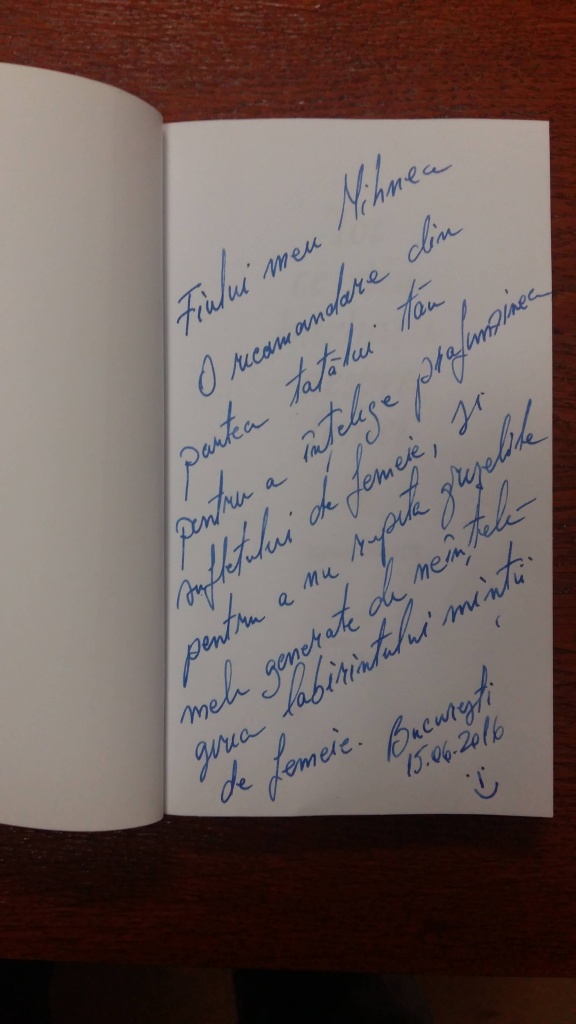 Fiului meu Mihnea
O recomandare din
partea tatălui tău
pentru a înțelege profunzimea
sufletului de femeie, și
pentru a nu repeta greșelile
mele generate de neînțele-
gerea labirintului minții
de femeie. București
15.06.2016